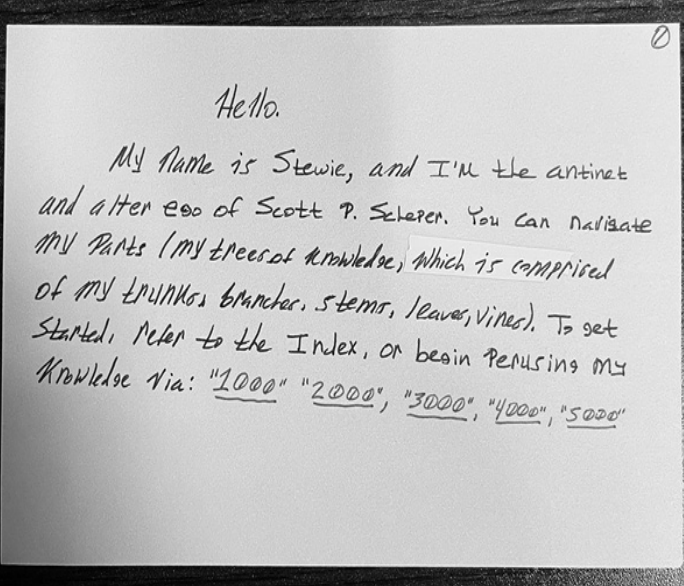 0
Hello.
My name is Stewie, and I'm the antinet
and alter ego of Scott P. Scheper. You can navigate
my parts (my trees of knowledge, which is comprised
of my trunks, branches, stems, leaves, vines). To get
started, refer to the Index, or begin perusing my
knowledge via: "1000" "2000", "3000", "4000", "5000"